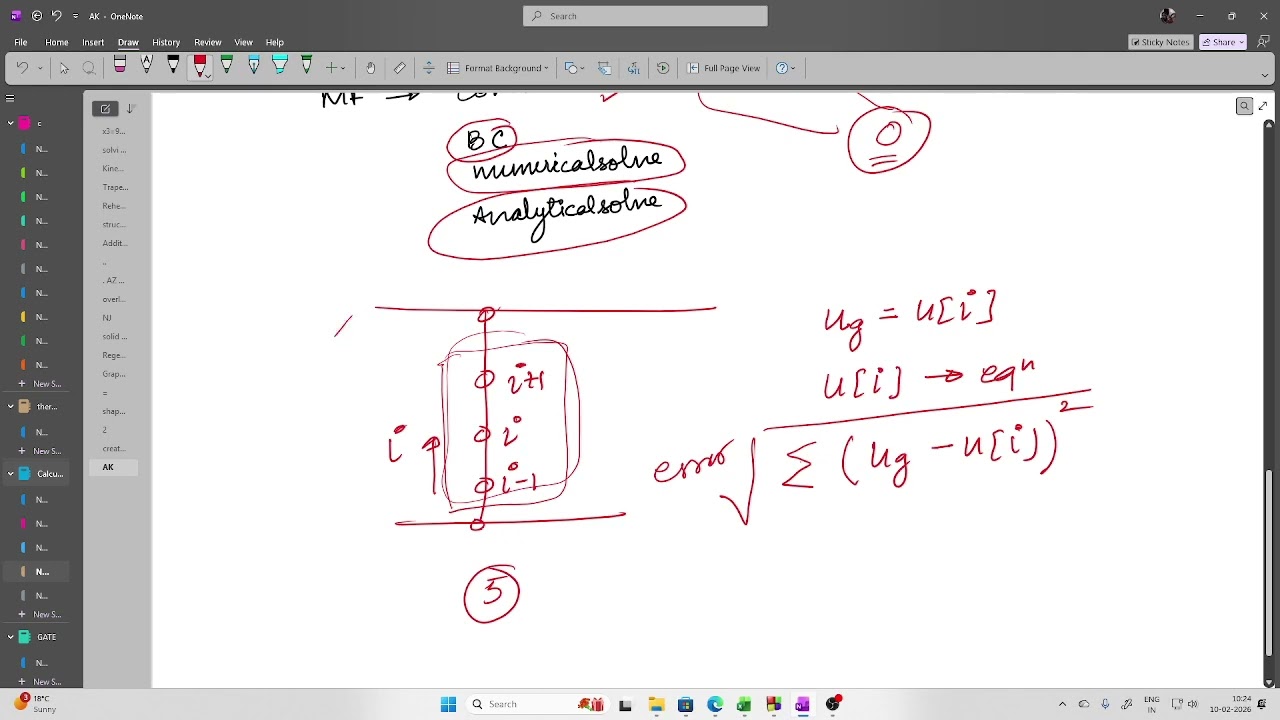 AK - OneNote
Search
File Home Insert Draw History Review View Help
Sticky Notes Share
Format Background Full Page View
MF →
BC
numericalsolve
Analyticalsolve
ug = u[i]
u[i] → eqn
error √ Σ (ug - u[i])2
i+1
i
i
i-1
5
c
N...
N...
N...
N...
N...
N...
N...
N...
N...
N...
+ New S...
ther...
N...
+ New S...
Calcu...
N...
N...
N...
N...
N...
+ New S...
GATE
N...
+ New S...
x3=9...
solvi ...
Kine...
Trape...
Rehe...
struc...
Addit...
..
. AZ ...
overl...
NJ
solid ...
Rege...
Grap...
=
shap...
2
creat...
AK
3
18°C
Sunny
Search
ENG
IN
10:24
10-02-2026